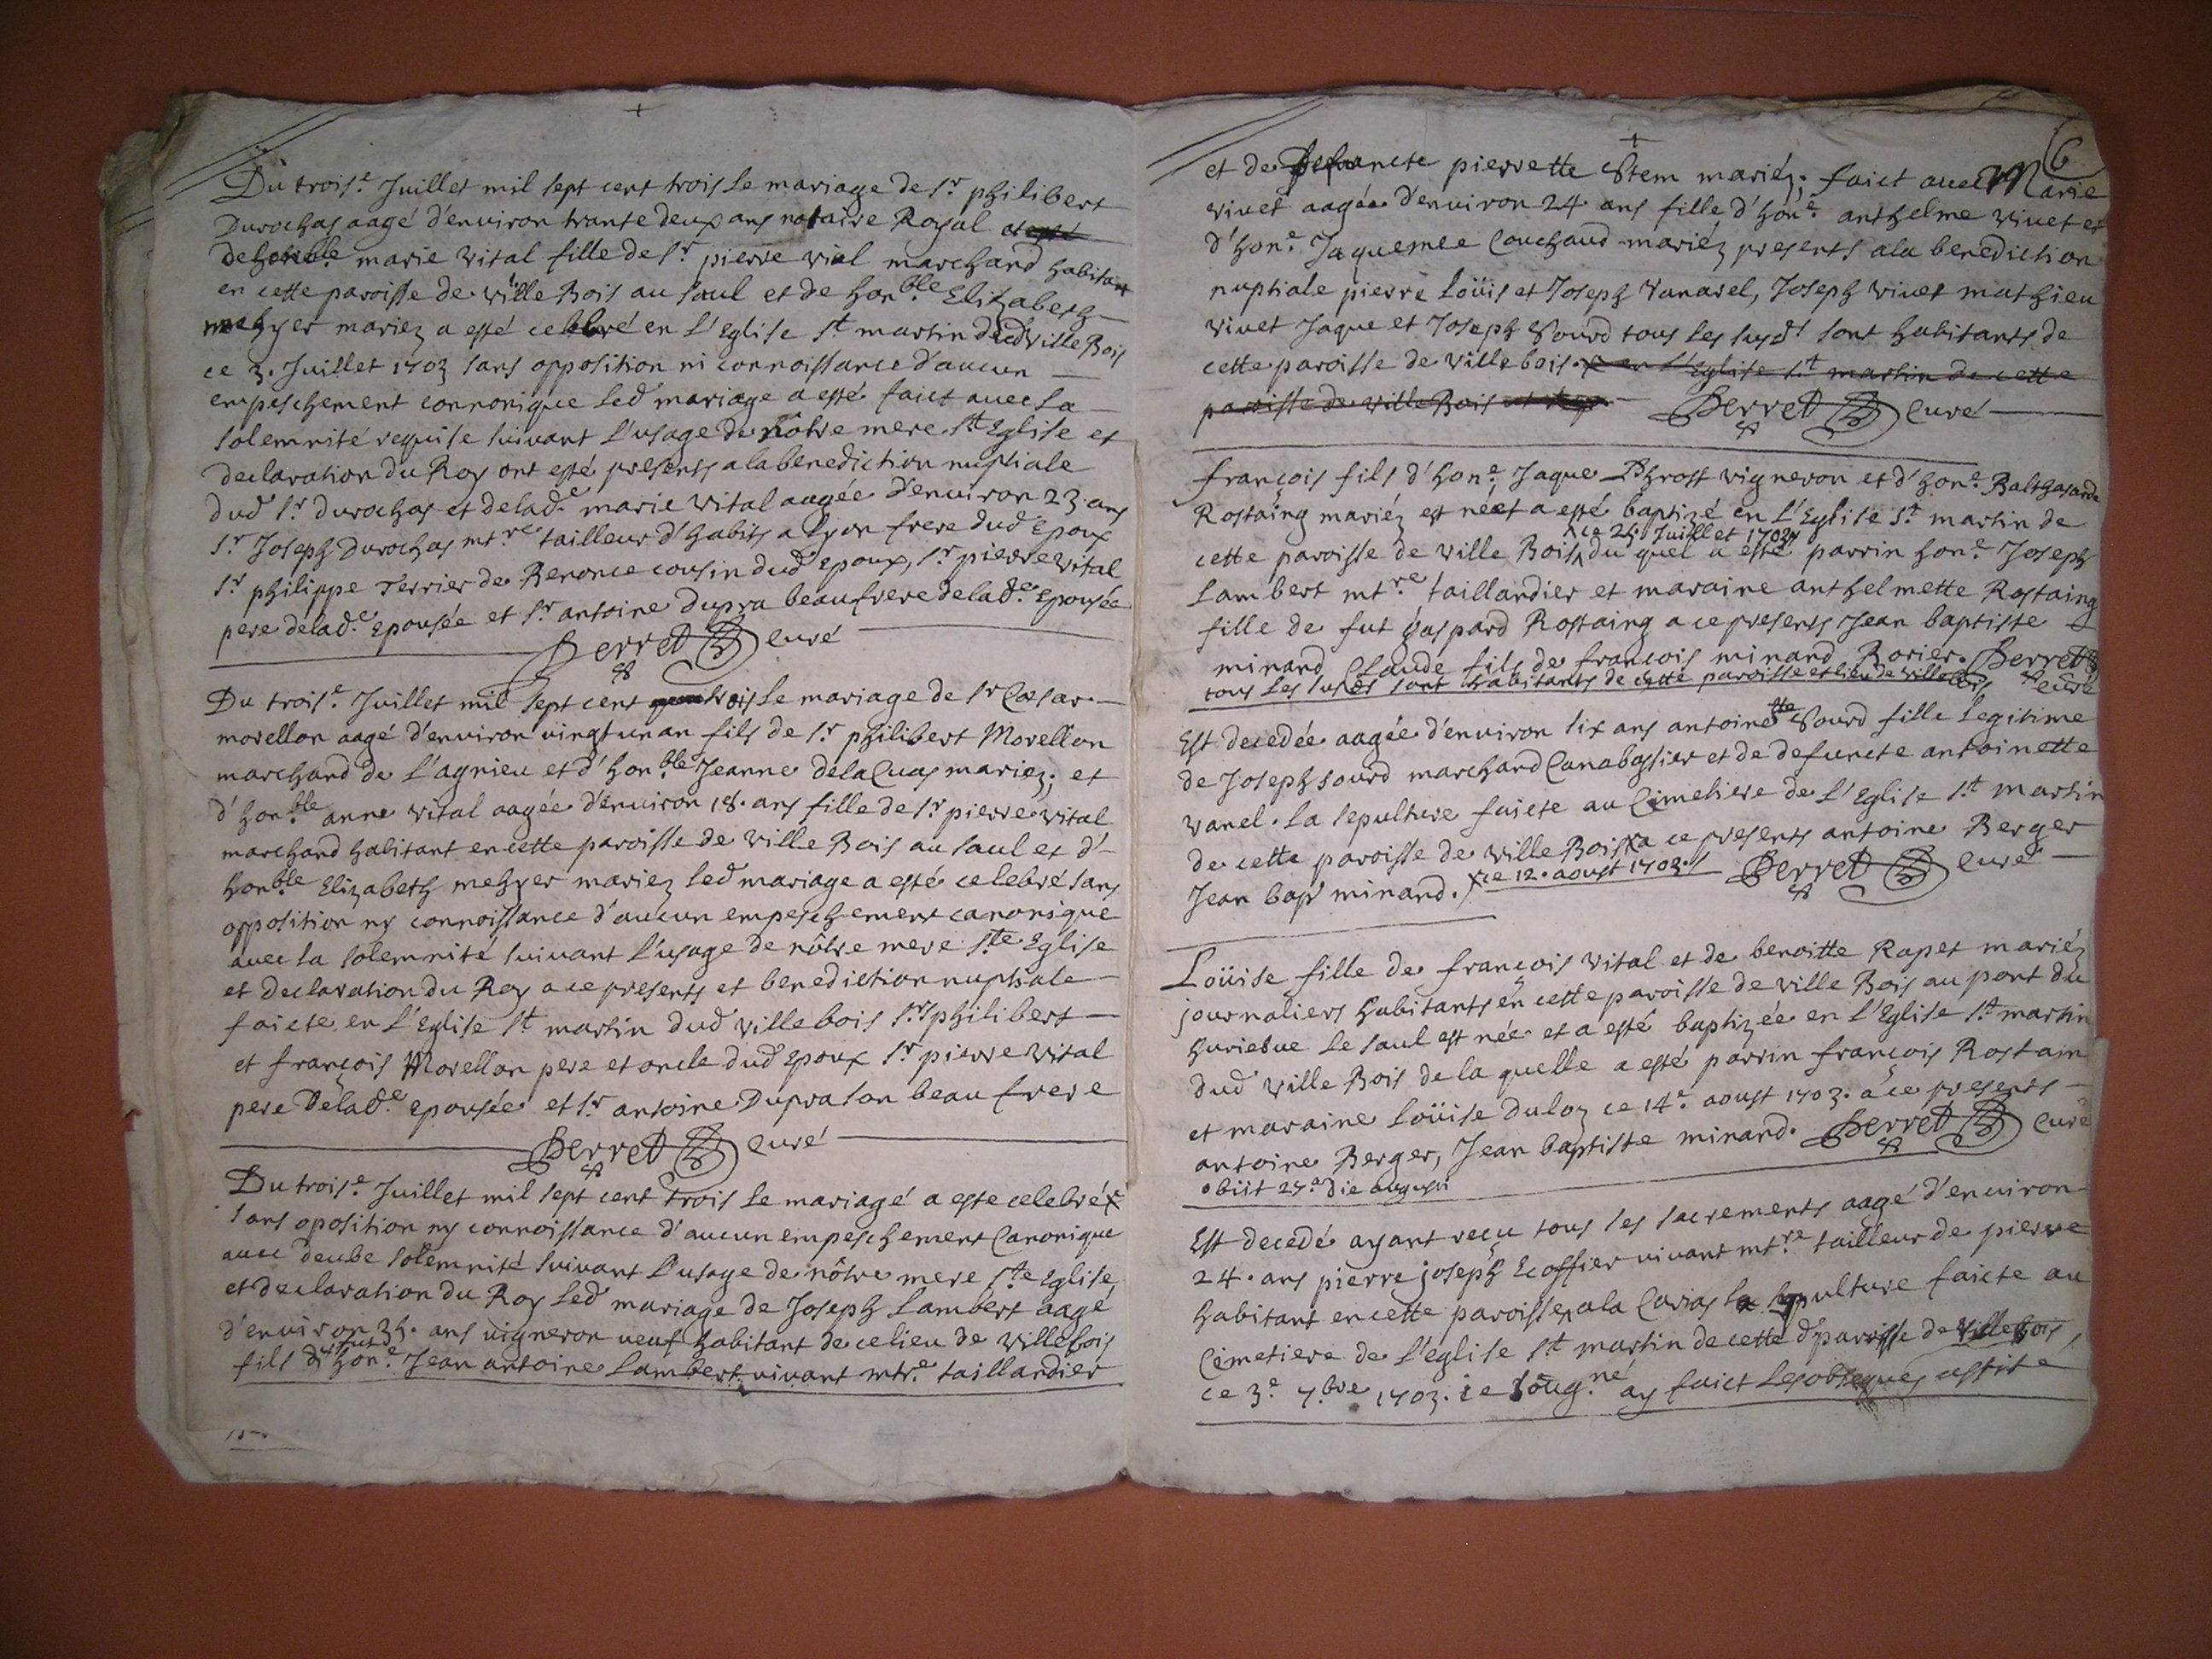 Du trois.e Juillet mil sept cent trois le mariage de s.r philibert
Durochas aagé d'environ trante deux ans notaire Royal et
de honble marie vital fille de s.r pierre vial marchand habitant
en cette paroisse de ville Bois au saul et de hon.ble Elizabeth
mehyer mariez a esté celebré en l'Eglise s.t martin dud ville Bois
ce 3. Juillet 1703 sans opposition ni connoissance d'aucun
empeschement connonique led mariage a esté faict avec la
solemnité requise suivant l'usage de nôtre mere s.t Eglise et
declaration du Roy ont esté presents a la benediction nuptiale
dud s.r durochas et delad.e marie vital aagée d'environ 23. ans
s.r Joseph Durochas mt.re tailleur d'habits a lyon frere dud epoux
s.r philippe Terrier de Renonce cousin dud epoux, s.r pierre vital
pere delad.e epousée et s.r antoine dupra beaufrere delad.e epousée
Perret curé
Du trois.e Juillet mil sept cent trois le mariage de s.r Cæsar
morellon aagé d'environ vingt un an fils de s.r philibert Morellon
marchand de l'agnieu et d'hon.ble Jeanne dela Cuas mariez; et
d'hon.ble anne vital aagée d'environ 18. ans fille de s.r pierre vital
marchand habitant en cette paroisse de ville Bois au saul et d'
hon.ble Elizabeth mehyer mariez led mariage a esté celebré sans
opposition ny connoissance d'aucun empeschement canonique
avec la solemnité suivant l'usage de nôtre mere s.te Eglise
et declaration du Roy a ce presents et benediction nuptiale
faicte en l'Eglise s.t martin dud villebois s.rs philibert
et françois Morellon pere et oncle dud epoux s.r pierre vital
pere delad.e epousée et s.r antoine Dupra son beau frere
Perret curé
Du trois.e Juillet mil sept cent trois le mariagé a este celebré x
sans oposition ny connoissance d'aucun empeschement Canonique
avec deube solemnité suivant l'usage de nôtre mere s.te Eglise
et declaration du Roy led mariage de Joseph Lambert aagé
d'environ 35. ans vigneron veuf habitant de ce lieu de villebois
fils d'hon.e Jean antoine Lambert vivant mtr.e taillandier
6
et de defuncte pierrette Stem mariéz; faict avec Marie
vivet aagée d'environ 24 ans fille d'hon.e anthelme vivet et
d'hon.e Jaquemee Couchaud mariéz presents a la benediction
nuptiale pierre Loüis et Joseph Vanarel, Joseph vivet mathieu
vivet Jaque et Joseph Sourd tous les susd.t sont habitants de
cette paroisse de ville bois. en l'Eglise s.t martin de cette
paroisse de ville Bois Perret curé
françois fils d'hon.e Jaque Phrost vigneron et d'hon.e Balthasarde
Rostaing mariéz est né et a esté baptizé en l'Eglise s.t martin de
ce 25. Juillet 1703
cette paroisse de ville Bois du quel a esté parrin hon.e Joseph
Lambert mt.re taillandier et maraine anthelmette Rostaing
fille de fut gaspard Rostaing a ce presents Jean baptiste
minand Claude fils de françois minand Rorier. Perret
tous les susds sont habitants de cette paroisse et lieu de villebois curé
Est decedée aagée d'environ six ans antoinette Sourd fille legitime
de Joseph sourd marchand Canabassier et de defuncte antoinette
vanel. la sepulture faicte au Cimetiere de l'Eglise s.t martin
de cette paroisse de ville Bois x a ce presents antoine Berger
Jean bap.t minand. x ce 12. aoust 1703. Perret curé
Loüise fille de françois vital et de benoitte Rapet mariéz
journaliers habitants en cette paroisse de ville Bois au pont du
huriebue le saul est née et a esté baptizée en l'Eglise s.t martin
dud ville Bois de la quelle a esté parrin françois Rostain
et maraine Loüise duloz ce 14.e aoust 1703. a ce presents
antoine Berger, Jean baptiste minand. Perret curé
obiit 27.a die augusti
Est decedé ayant reçu tous les sacrements aagé d'environ
24. ans pierre joseph Ecoffier vivant mt.re tailleur de pierre
habitant en cette paroisse, a la Carias la sepulture faicte au
Cimetiere de l'eglise s.t martin de cette d paroisse de ville bois,
ce 3.e 7.bre 1703. ie soug.né ay faict les obseques assisté